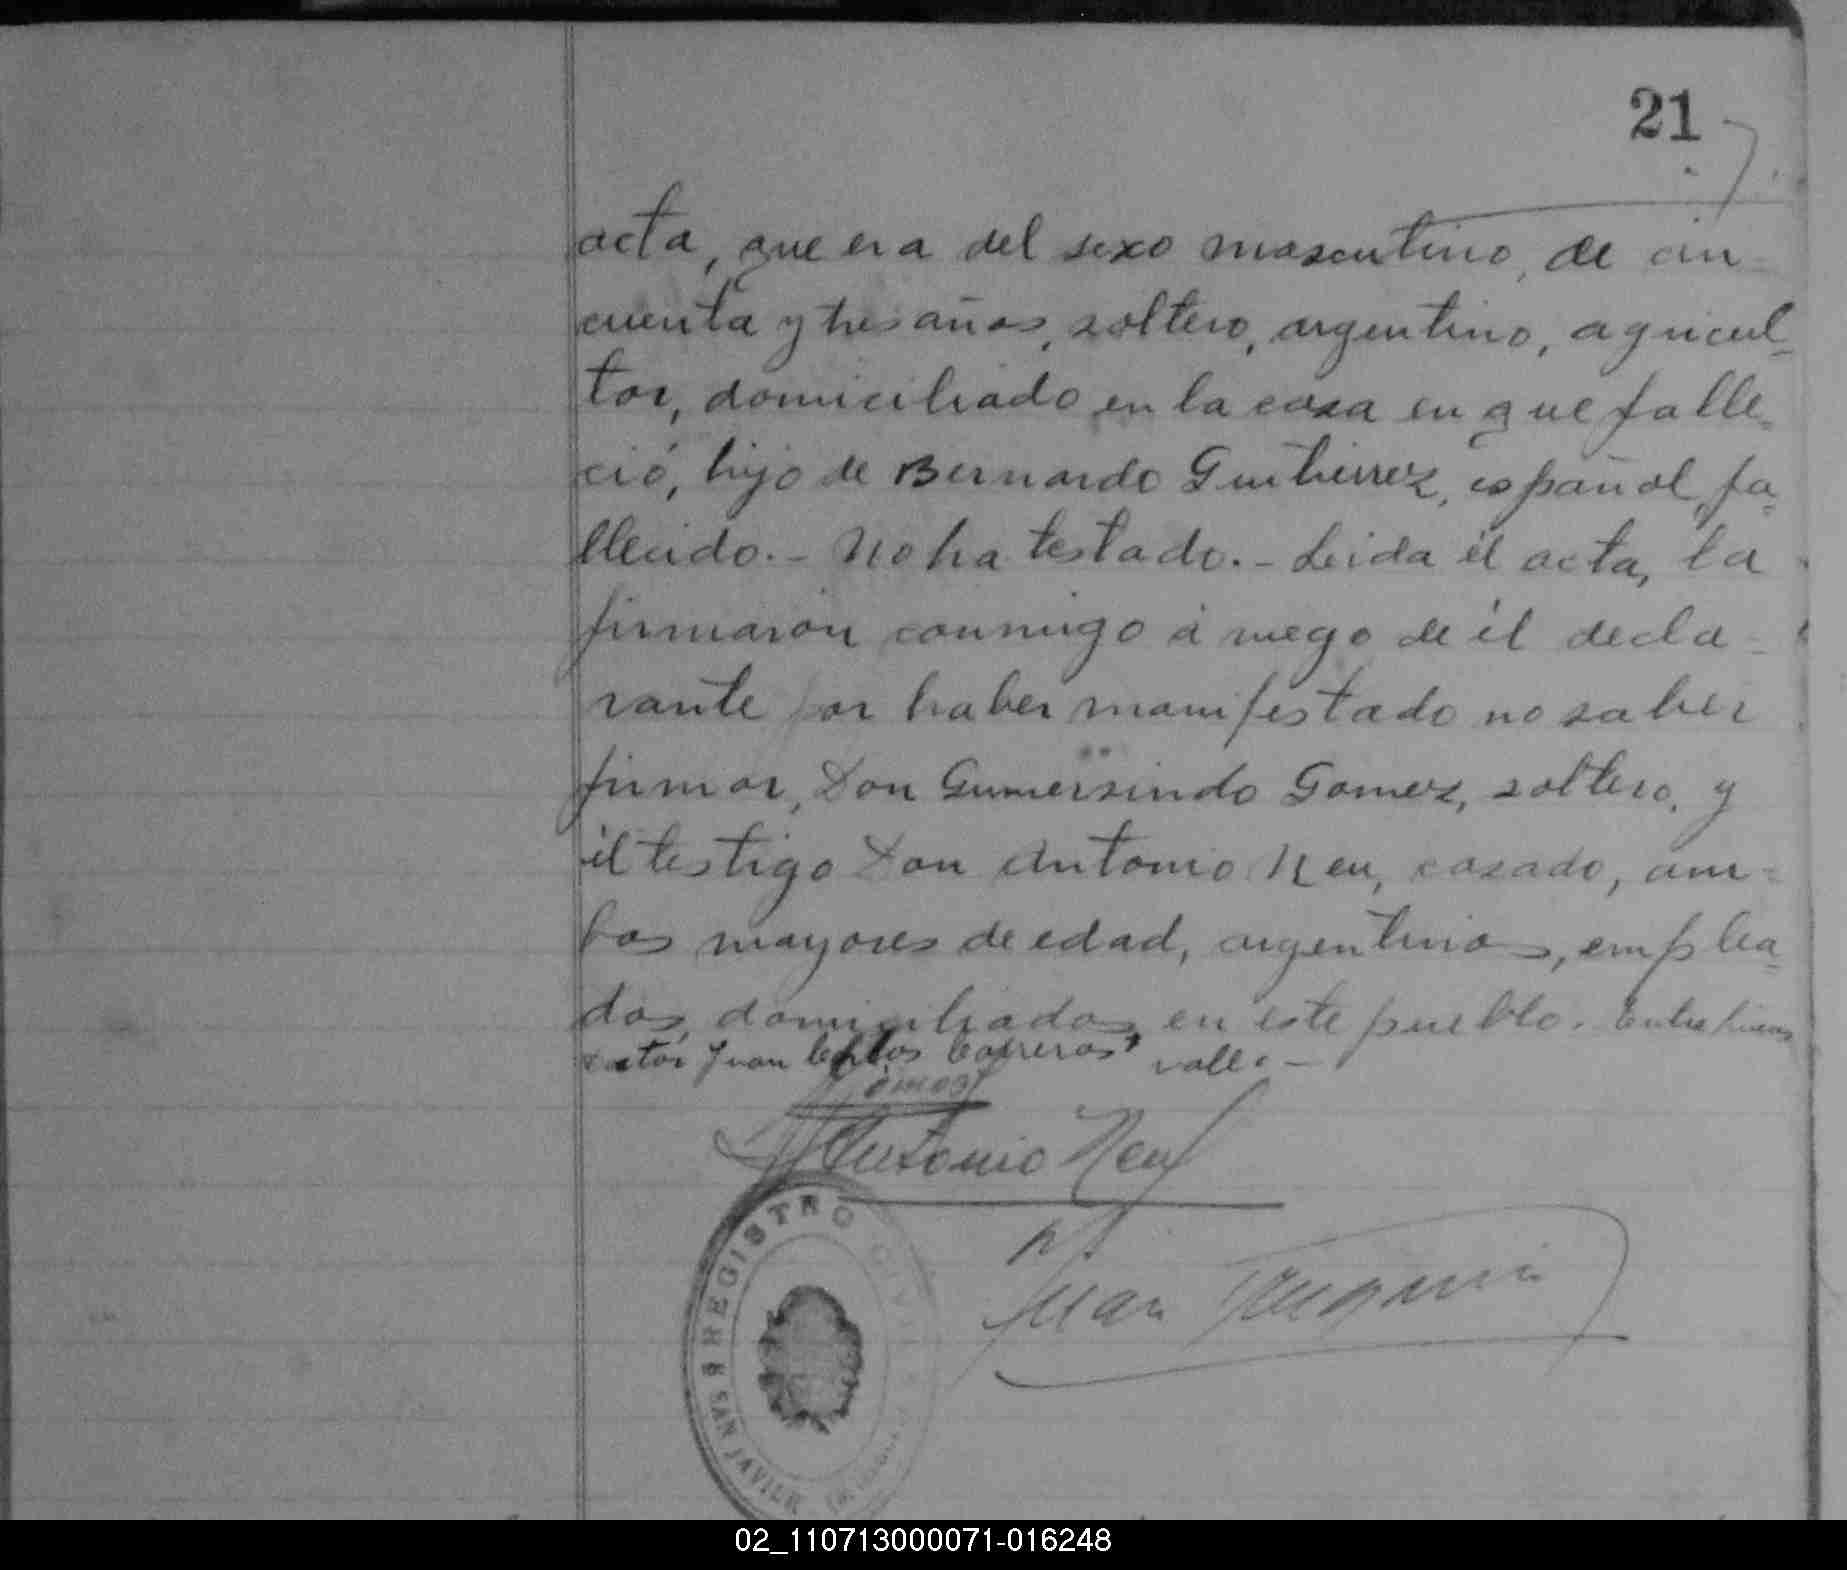 21
acta, que era del sexo masculino, de cin-
cuenta y tres años, soltero, argentino, agricul-
tor, domiciliado en la casa en que falle-
ció, hijo de Bernardo Gutierrez, español, fa-
llecido.- No ha testado.- Leida él acta, la
firmaron conmigo á ruego de él decla-
rante por haber manifestado no saber
firmar, Don Gumersindo Gomez, soltero, y
él testigo Don Antonio Neu, casado, am-
bos mayores de edad, argentinos, emplea-
dos, domiciliados, en este pueblo. Entre lineas
Juan Carlos Carreras" valle -
Gomez
Antonio Neu
Juan
REGISTRO CIVIL
SAN JAVIER
02_110713000071-016248